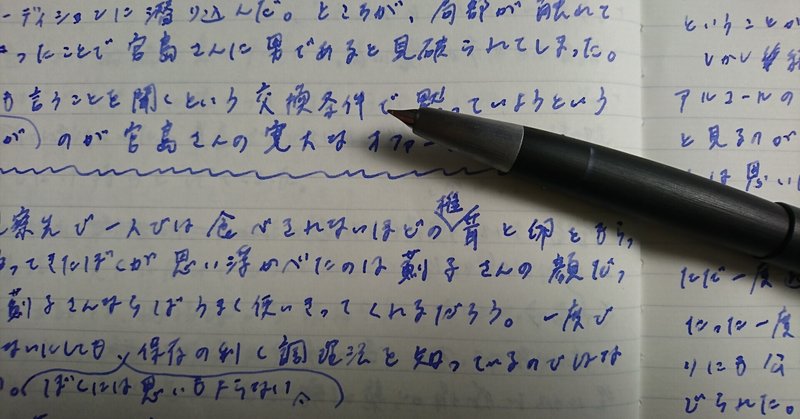 ーディションに潜り込んだ。ところが、局部が触れて
ったことで宮島さんに男であると見破られてしまった。
も言うことを聞くという交換条件で黙っていようという
が のが宮島さんの寛大なオファー
先で一人では食べきれないほどの椎茸と卵をもらっ
ってきたぼくが思い浮かべたのは薊子さんの顔だっ
薊子さんならばうまく使いきってくれるだろう。一度で
ないにしても、保存の利く調理法を知っているのではな
。ぼくには思いもよらない、
ということが
しかし
アルコールの
と見るのが
は思い
ただ一度
たった一度
りにも公
じられた。